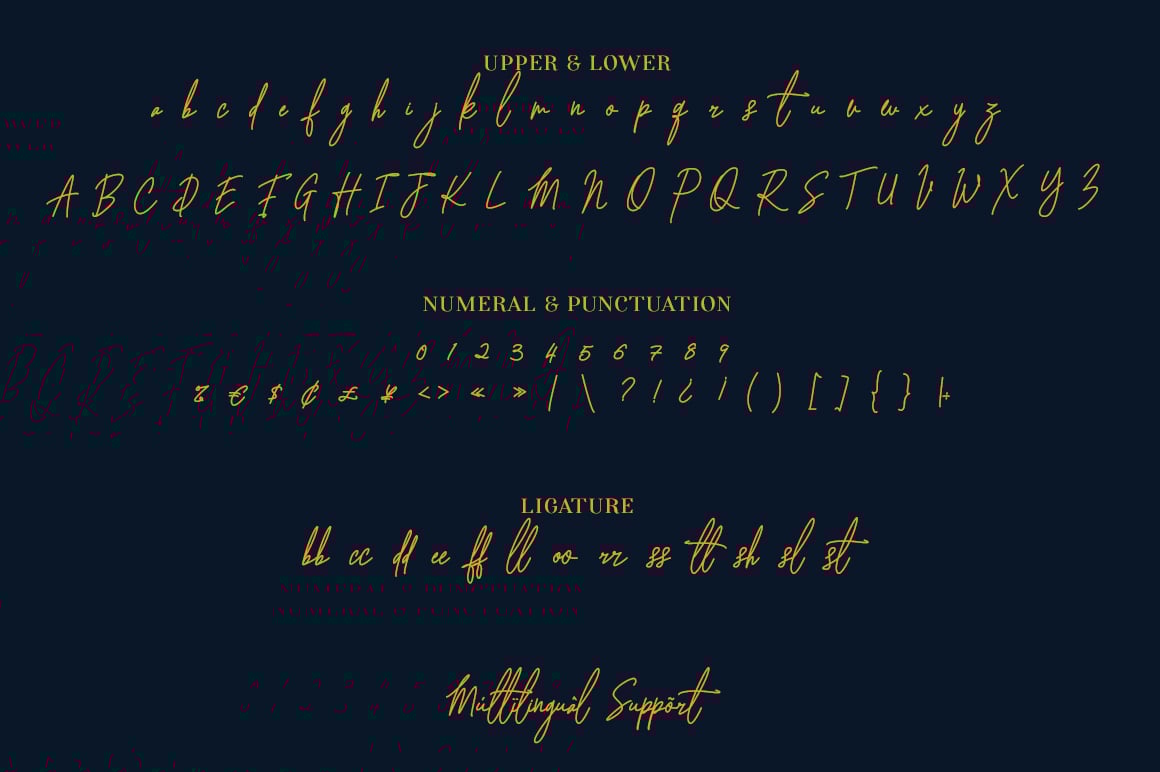 UPPER & LOWER
a b c d e f g h i j k l m n o p q r s t u v w x y z
A B C D E F G H I J K L M N O P Q R S T U V W X Y Z
NUMERAL & PUNCTUATION
0 1 2 3 4 5 6 7 8 9
% € $ ₵ £ ¥ < > « » / \ ? ! ¿ ¡ ( ) [ ] { }
LIGATURE
bb cc dd ee ff ll oo rr ss tt sh sl st
Múltïlinguàl Suppõrt